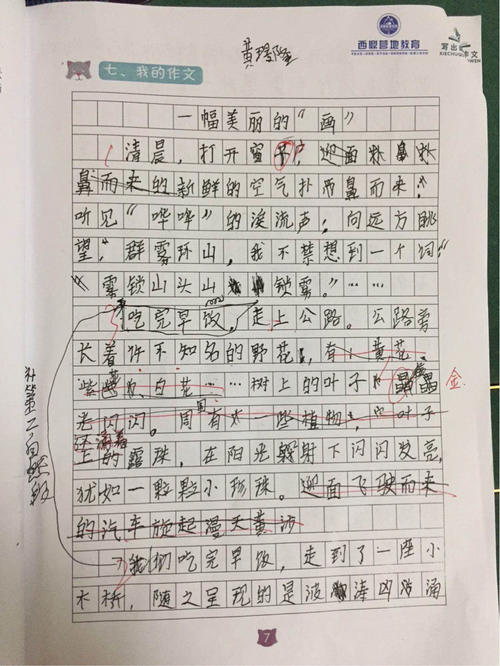 黄璟隆
西堰营地教育
写出 作文
XIECHU WEN
七、我的作文
一幅美丽的“画”
清晨，打开窗户，迎面扑鼻扑
鼻而来的新鲜的空气扑面鼻而来！
听见“哗哗”的溪流声；向远方眺
望，群雾环山，我不禁想到一个词：
“雾锁山头山锁雾。”……
吃完早饭，走上公路。公路旁
长着许不知名的野花，有黄花、
紫 白花……树上的叶子 金
光闪闪。周围有一些植物，叶子
上的露珠，在阳光照射下闪闪发亮，
犹如一颗颗小珍珠。迎面飞驶而来
的汽车旋起漫天黄沙
我们吃完早饭，走到了一座小
木桥，随之呈现的是波涛凶汹涌
7